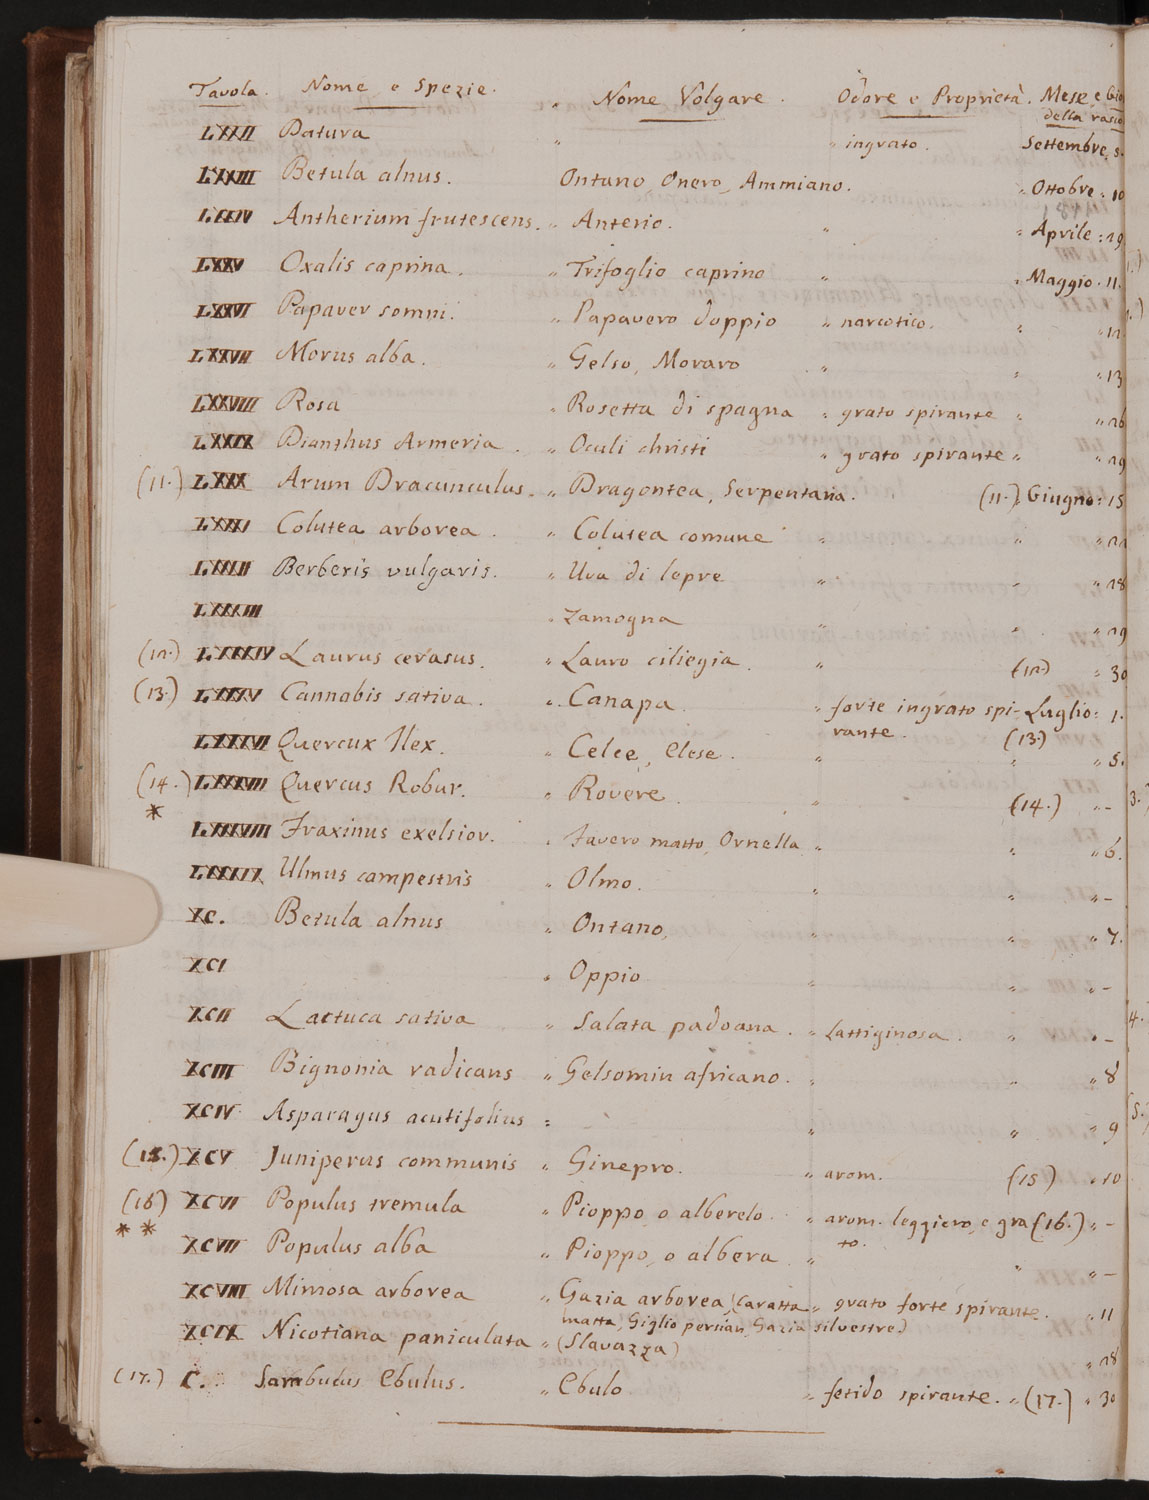 Tavola. Nome e Spezie. " Nome Volgare. Odore e Proprietà. Mese e Gio
della rasio
LXXII Datura " " ingrato. Settembre, 5.
LXXIII Betula alnus. Ontano, Onero, Ammiano. " Ottobre " 10
LXXIV Antherium frutescens. " Anterio. " " Aprile : 29
LXXV Oxalis caprina. " Trifoglio caprino " " Maggio . 11.
LXXVI Papaver somni. " Papavero doppio " narcotico. " " 12
LXXVII Morus alba. " Gelso, Moraro " " " 13
LXXVIII Rosa " Rosetta di spagna " grato spirante " " 26
LXXIX Dianthus Armeria. " Oculi christi " grato spirante " " 29
(11.) LXXX Arum Dracunculus. " Dragontea, Serpentaria. (11.) Giugno : 15
LXXXI Colutea arborea. " Colutea comune " " " 22
LXXXII Berberis vulgaris. " Uva di lepre " " " 28
LXXXIII " Zamogna " " " 29
(12.) LXXXIV Laurus cerasus. " Lauro ciliegia. " (12) " 30
(13.) LXXXV Cannabis sativa. " Canapa. " forte ingrato spi- Luglio : 1.
rante. (13.)
LXXXVI Quercux Ilex. " Celee, Elese. " " " 5.
(14.) LXXXVII Quercus Robur. " Rovere. " (14.) " -
*
LXXXVIII Fraxinus exelsior. " Favero matto, Ornella " " " 6.
LXXXIX Ulmus campestris " Olmo. " " " -
XC. Betula alnus " Ontano, " " " 7.
XCI " Oppio " " " -
XCII Lactuca sativa " Salata padoana. " Lattiginosa. " " -
XCIII Bignonia radicans " Gelsomin africano. " " " 8
XCIV Asparagus acutifolius : " " " 9
(15.) XCV Juniperus communis " Ginepro. " arom. (15) " 10
(16) XCVI Populus tremula " Pioppo, o alberelo. " arom. leggiero, e gra (16.) " -
* * to.
XCVII Populus alba " Pioppo, o albera " " " -
XCVIII Mimosa arborea " Gazia arborea, (Caratta " grato forte spirante. " 11
matta, Giglio persian, Gazia silvestre)
XCIX Nicotiana paniculata " (Slavazza) " 28
(17.) C. Sambucus Ebulus. " Ebulo " fetido spirante. " (17.) " 30